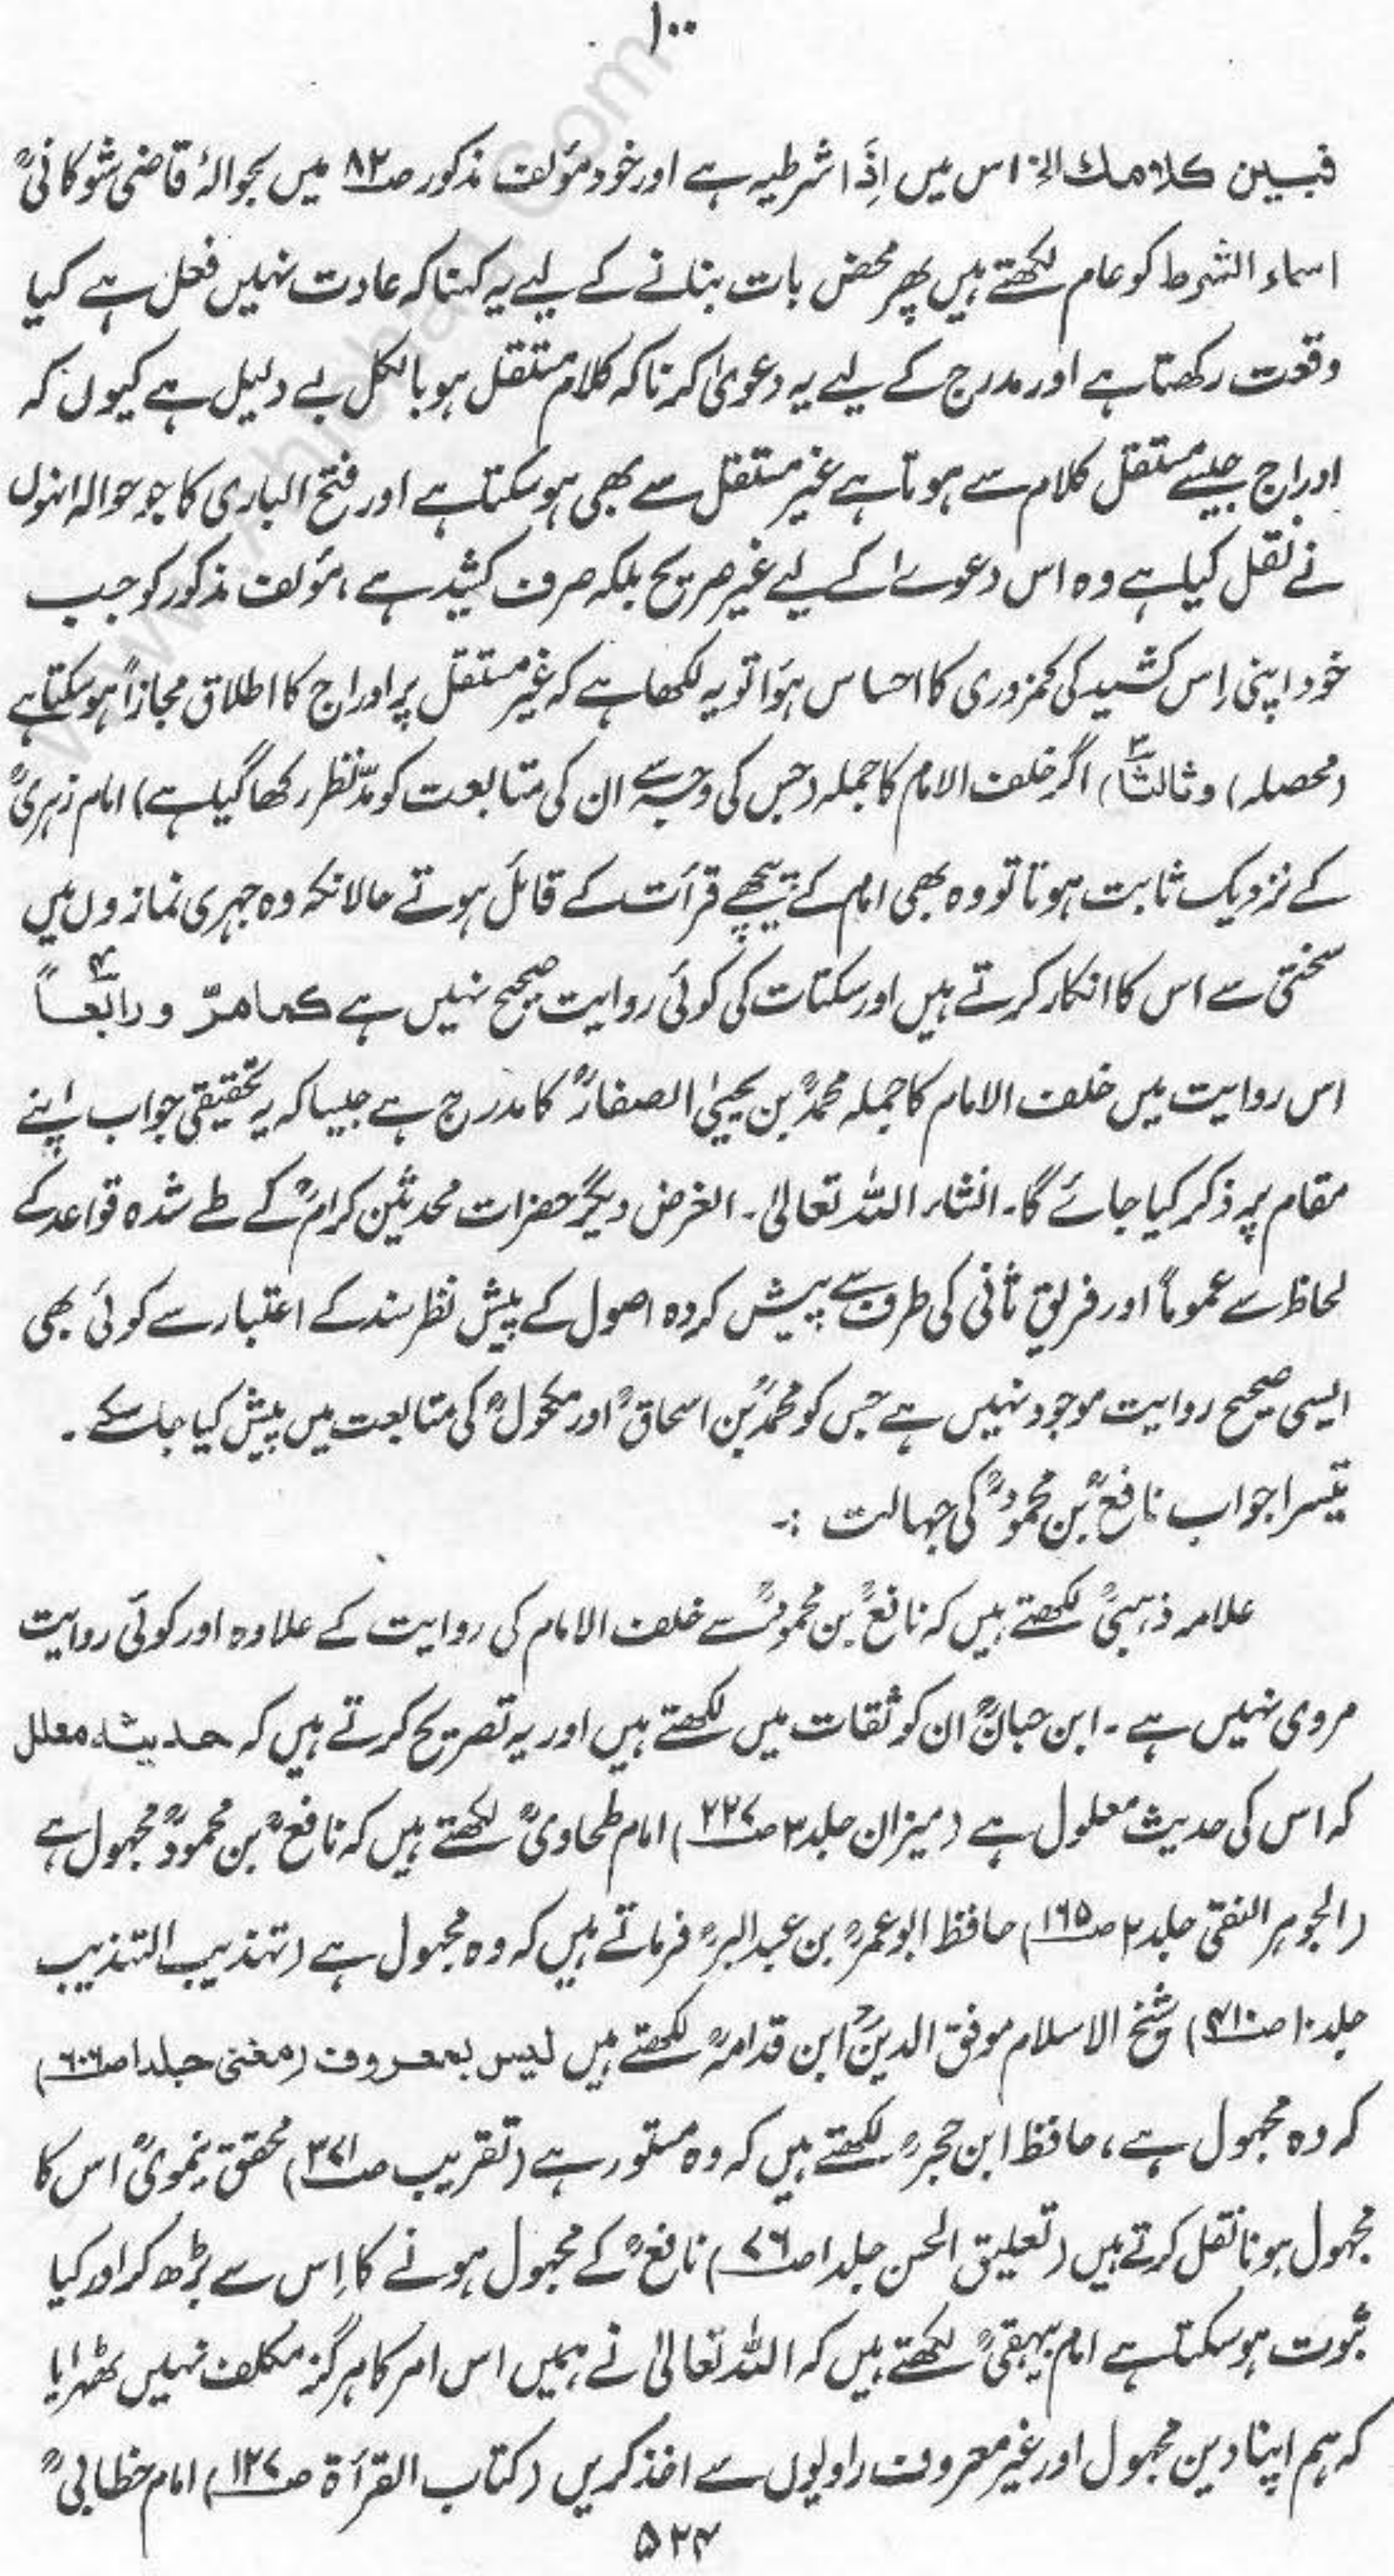 ۱۰۰
فبین کلامك الخ اس میں اِذَا شرطیہ ہے اور خود مؤلف مذکور صـ۸۲ میں بحوالۂ قاضی شوکانیؒ
اسماء الشرط کو عام لکھتے ہیں پھر محض بات بنانے کے لیے یہ کہنا کہ عادت نہیں فعل ہے کیا
وقعت رکھتا ہے اور مدرج کے لیے یہ دعویٰ کرنا کہ کلام مستقل ہو بالکل بے دلیل ہے کیوں کہ
ادراج جیسے مستقل کلام سے ہوتا ہے غیر مستقل سے بھی ہو سکتا ہے اور فتح الباری کا جو حوالہ انہوں
نے نقل کیا ہے وہ اس دعوےٰ کے لیے غیر صریح بلکہ صرف کشید ہے، مؤلف مذکور کو جب
خود اپنی اِس کشید کی کمزوری کا احساس ہؤا تو یہ لکھا ہے کہ غیر مستقل پر ادراج کا اطلاق مجازاً ہو سکتا ہے
(محصلہ) وثالثاً ۳) اگر خلف الامام کا جملہ (جس کی وجہ سے ان کی متابعت کو مدِّ نظر رکھا گیا ہے) امام زہریؒ
کے نزدیک ثابت ہوتا تو وہ بھی امام کے پیچھے قرأت کے قائل ہوتے حالانکہ وہ جہری نمازوں میں
سختی سے اس کا انکار کرتے ہیں اور سکتات کی کوئی روایت صحیح نہیں ہے کما مرّ و رابعاً ۴
اس روایت میں خلف الامام کا جملہ محمدؒ بن یحییٰ الصفارؒ کا مدرج ہے جیسا کہ یہ تحقیقی جواب اپنے
مقام پر ذکر کیا جائے گا۔ انشاء اللہ تعالیٰ۔ الغرض دیگر حضرات محدثین کرامؒ کے طے شدہ قواعد کے
لحاظ سے عموماً اور فریق ثانی کی طرف سے پیش کردہ اصول کے پیش نظر سند کے اعتبار سے کوئی بھی
ایسی صحیح روایت موجود نہیں ہے جس کو محمدؒ بن اسحاقؒ اور مکحولؒ کی متابعت میں پیش کیا جا سکے۔
تیسرا جواب نافعؒ بن محمودؒ کی جہالت :۔
علامہ ذہبیؒ لکھتے ہیں کہ نافعؒ بن محمودؒ سے خلف الامام کی روایت کے علاوہ اور کوئی روایت
مروی نہیں ہے۔ ابن حبانؒ ان کو ثقات میں لکھتے ہیں اور یہ تصریح کرتے ہیں کہ حدیثہ معلل
کہ اس کی حدیث معلول ہے (میزان جلد۳ صـ۲۲۷) امام طحاویؒ لکھتے ہیں کہ نافعؒ بن محمودؒ مجہول ہے
(الجوہر النقی جلد۲ صـ۱۶۵) حافظ ابو عمرؒ بن عبد البرؒ فرماتے ہیں کہ وہ مجہول ہے (تہذیب التہذیب
جلد۱۰ صـ۴۱۰) شیخ الاسلام موفق الدینؒ ابن قدامہؒ لکھتے ہیں لیس بمعروف (مغنی جلد۱ صـ۶۰۶)
کہ وہ مجہول ہے، حافظ ابن حجرؒ لکھتے ہیں کہ وہ مستور ہے (تقریب صـ۳۷۱) محقق نیمویؒ اس کا
مجہول ہونا نقل کرتے ہیں (تعلیق الحسن جلد۱ صـ۷۶) نافعؒ کے مجہول ہونے کا اِس سے بڑھ کر اور کیا
ثبوت ہو سکتا ہے امام بیہقیؒ لکھتے ہیں کہ اللہ تعالیٰ نے ہمیں اس امر کا ہرگز مکلف نہیں ٹھہرایا
کہ ہم اپنا دین مجہول اور غیر معروف راویوں سے اخذ کریں (کتاب القرأۃ صـ۱۲۷) امام خطابیؒ
۵۲۴